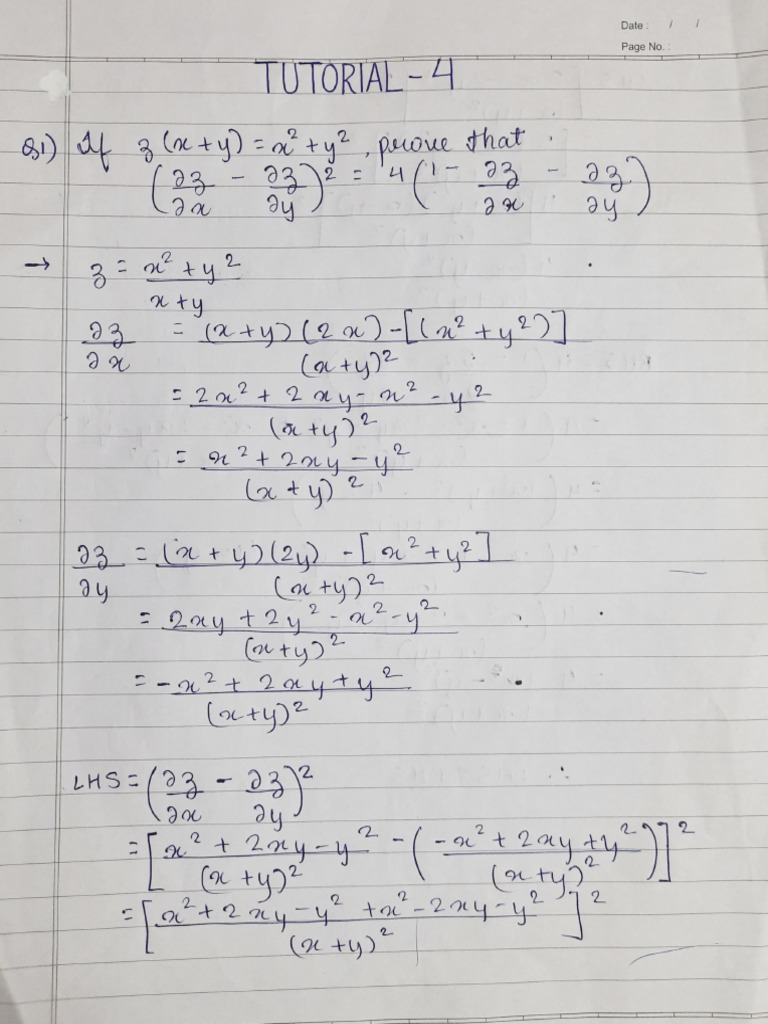 Date : / /
Page No. :
TUTORIAL - 4
Q1) If z (x+y) = x² + y², prove that
(∂z/∂x - ∂z/∂y)² = 4 (1 - ∂z/∂x - ∂z/∂y)
→ z = (x² + y²)/(x+y)
∂z/∂x = ((x+y)(2x) - [(x² + y²)])/(x+y)²
= (2x² + 2xy - x² - y²)/(x+y)²
= (x² + 2xy - y²)/(x+y)²
∂z/∂y = ((x+y)(2y) - [x² + y²])/(x+y)²
= (2xy + 2y² - x² - y²)/(x+y)²
= (-x² + 2xy + y²)/(x+y)²
LHS = (∂z/∂x - ∂z/∂y)²
= [(x² + 2xy - y²)/(x+y)² - ((-x² + 2xy + y²)/(x+y)²)]²
= [(x² + 2xy - y² + x² - 2xy - y²)/(x+y)²]²